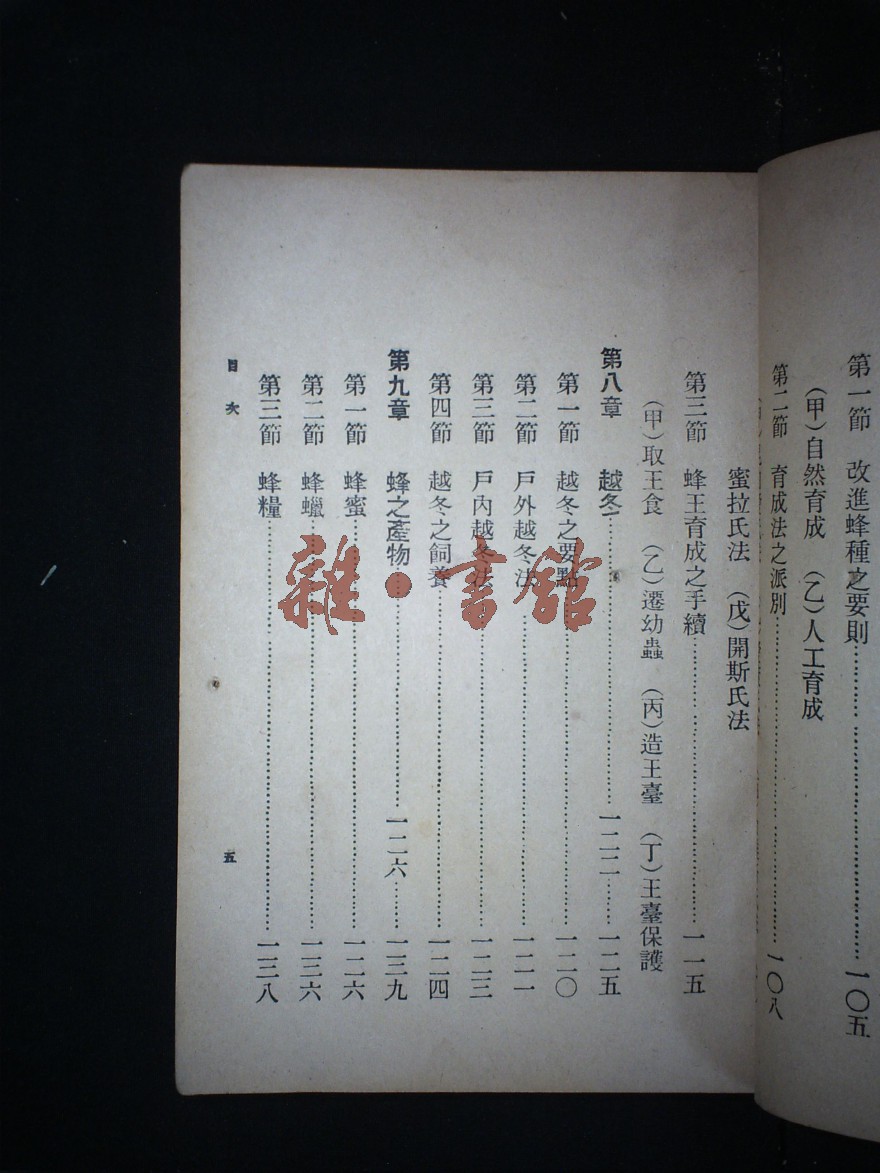 第一節　改進蜂種之要則……………………一〇五
（甲）自然育成　（乙）人工育成
第二節　育成法之派別……………………一〇八
蜜拉氏法　（戊）開斯氏法
第三節　蜂王育成之手續……………………一一五
（甲）取王食　（乙）遷幼蟲　（丙）造王臺　（丁）王臺保護
第八章　越冬……………………一二二……一二五
第一節　越冬之要點……………………一二〇
第二節　戶外越冬法……………………一二一
第三節　戶內越冬法……………………一二三
第四節　越冬之飼養……………………一二四
第九章　蜂之產物……………………一二六……一三九
第一節　蜂蜜……………………一二六
第二節　蜂蠟……………………一三六
第三節　蜂糧……………………一三八
目次
五
雜·書館